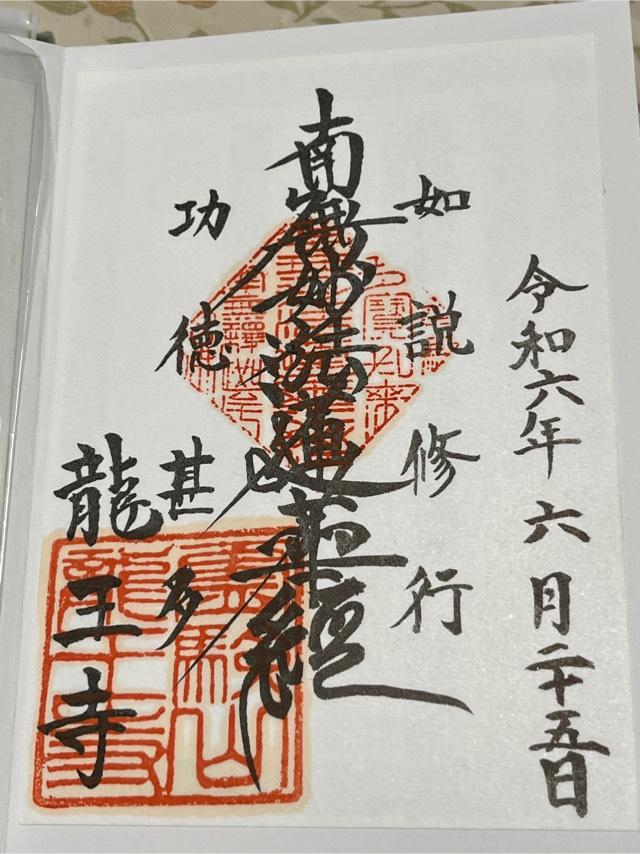 令和六年六月二十五日
如説修行
南無妙法蓮華経
功徳甚多
龍王寺